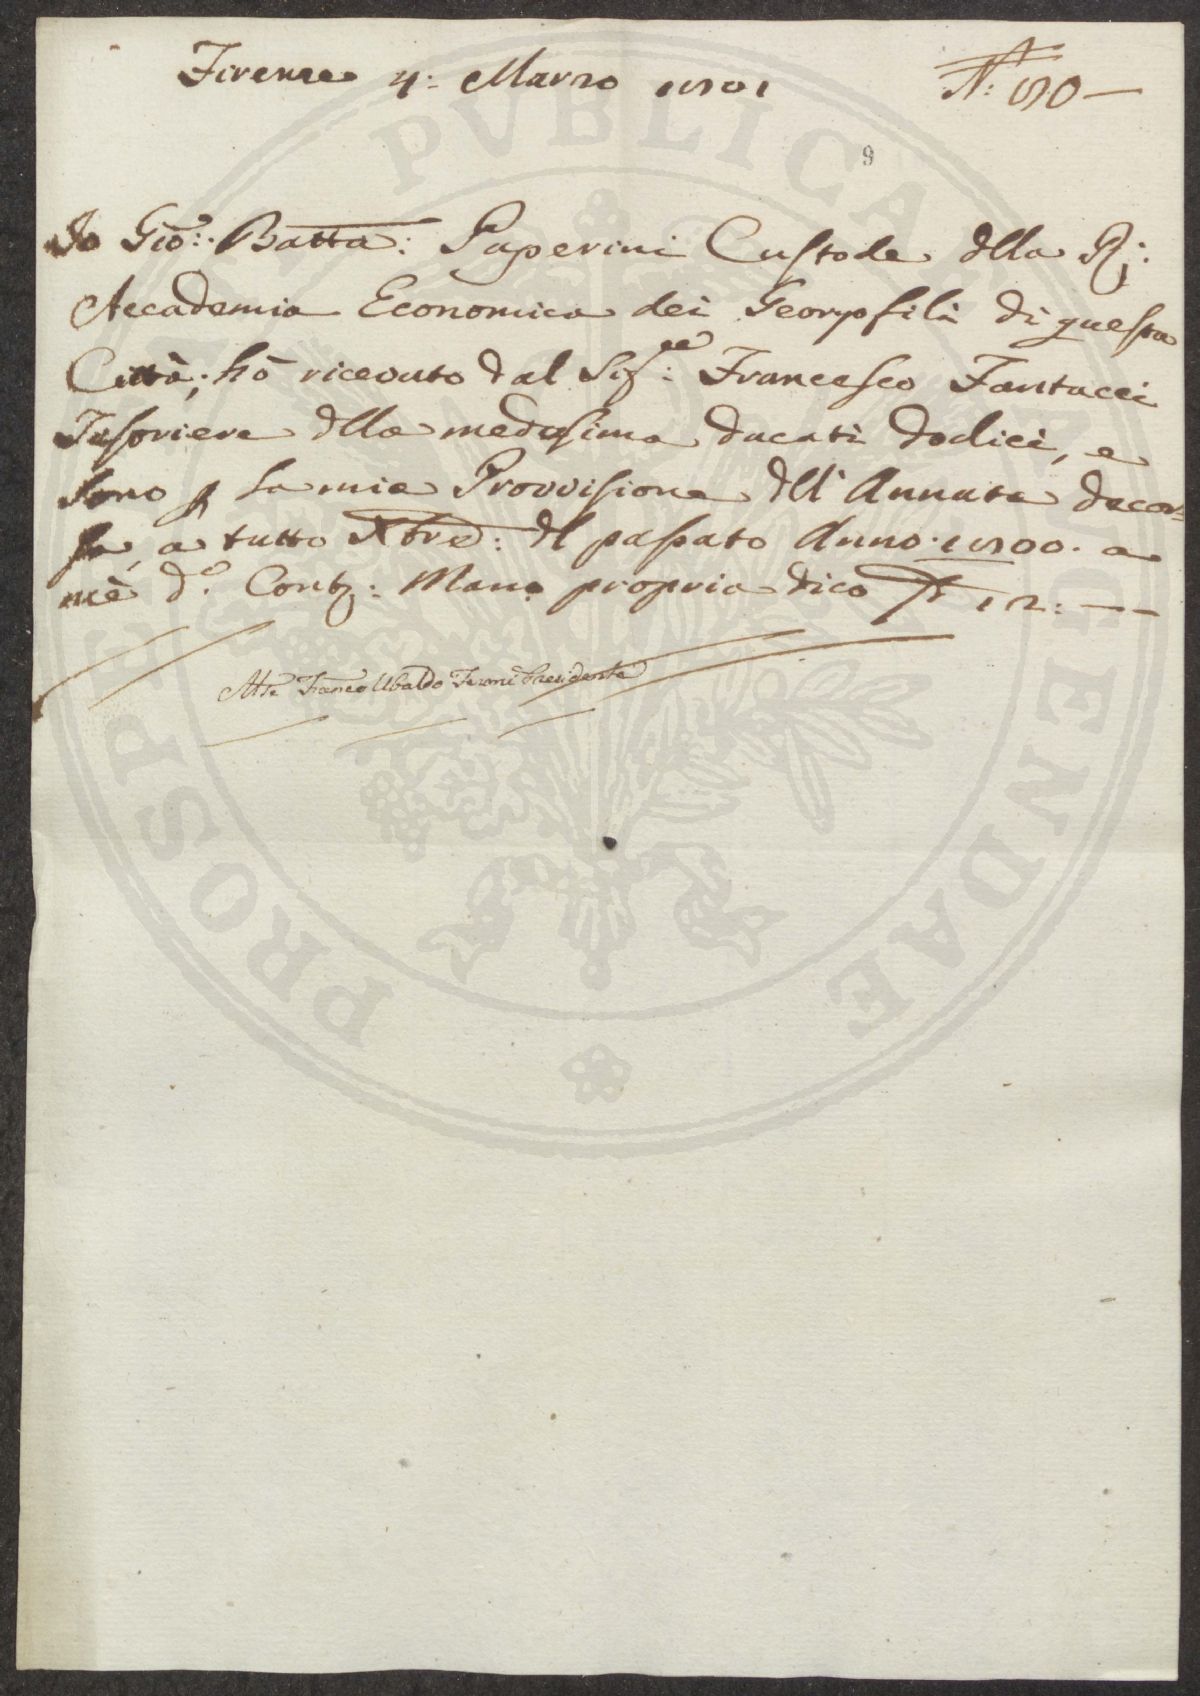 Firenze 4: Marzo 1801
N: 80 —
9
Io Gio: Batta: Paperini Custode della R:
Accademia Economica dei Georgofili di questa
Città, hò ricevuto dal Sig:re Francesco Fantacci
Tesoriere della medesima ducati dodici, e
sono p la mia Provvisione dell' Annata decor=
sa, a tutto Xbre: del passato Anno. 1800. a
mè do. Cont: Mano propria dico 12: —
Atte Franco Ubaldo Feroni Presidente
PROSPERITATI PUBLICAE AUGENDAE